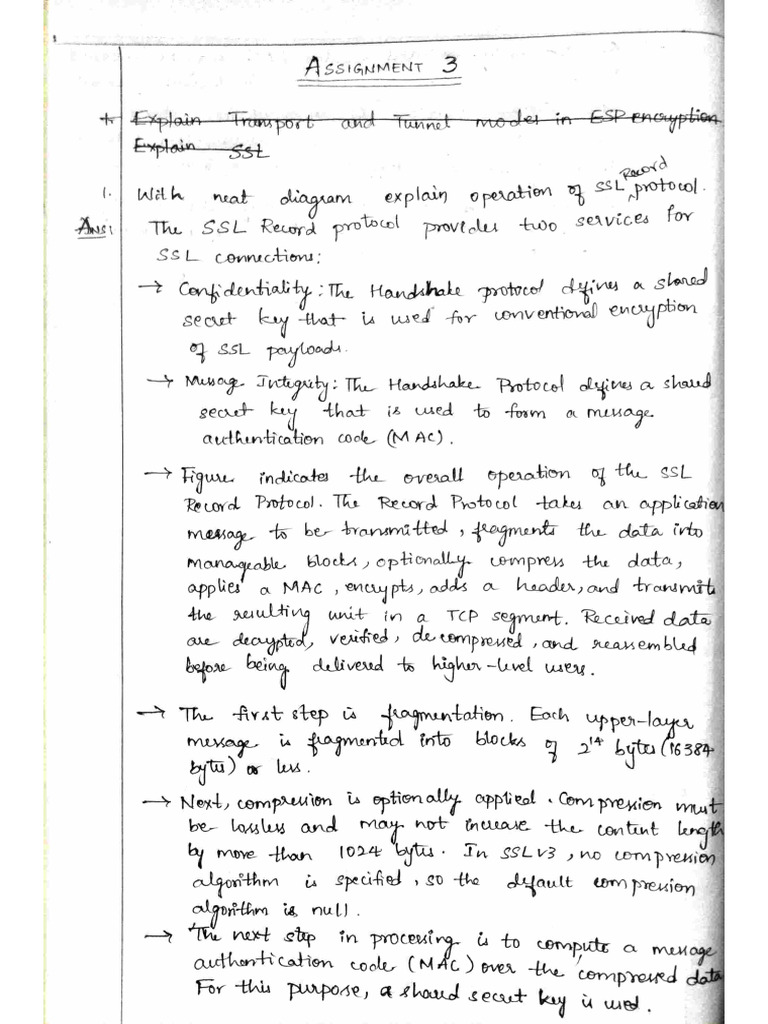 ASSIGNMENT 3
* Explain Transport and Tunnel modes in ESP encryption
Explain SSL
1. With neat diagram explain operation of SSL Record protocol.
Ans: The SSL Record protocol provides two services for
SSL connections:
→ Confidentiality: The Handshake protocol defines a shared
secret key that is used for conventional encryption
of SSL payloads.
→ Message Integrity: The Handshake Protocol defines a shared
secret key that is used to form a message
authentication code (MAC).
→ Figure indicates the overall operation of the SSL
Record Protocol. The Record Protocol takes an application
message to be transmitted, fragments the data into
manageable blocks, optionally compress the data,
applies a MAC, encrypts, adds a header, and transmits
the resulting unit in a TCP segment. Received data
are decrypted, verified, decompressed, and reassembled
before being delivered to higher-level users.
→ The first step is fragmentation. Each upper-layer
message is fragmented into blocks of 2^14 bytes (16384
bytes) or less.
→ Next, compression is optionally applied. Compression must
be lossless and may not increase the content length
by more than 1024 bytes. In SSLv3, no compression
algorithm is specified, so the default compression
algorithm is null.
→ The next step in processing is to compute a message
authentication code (MAC) over the compressed data
For this purpose, a shared secret key is used.